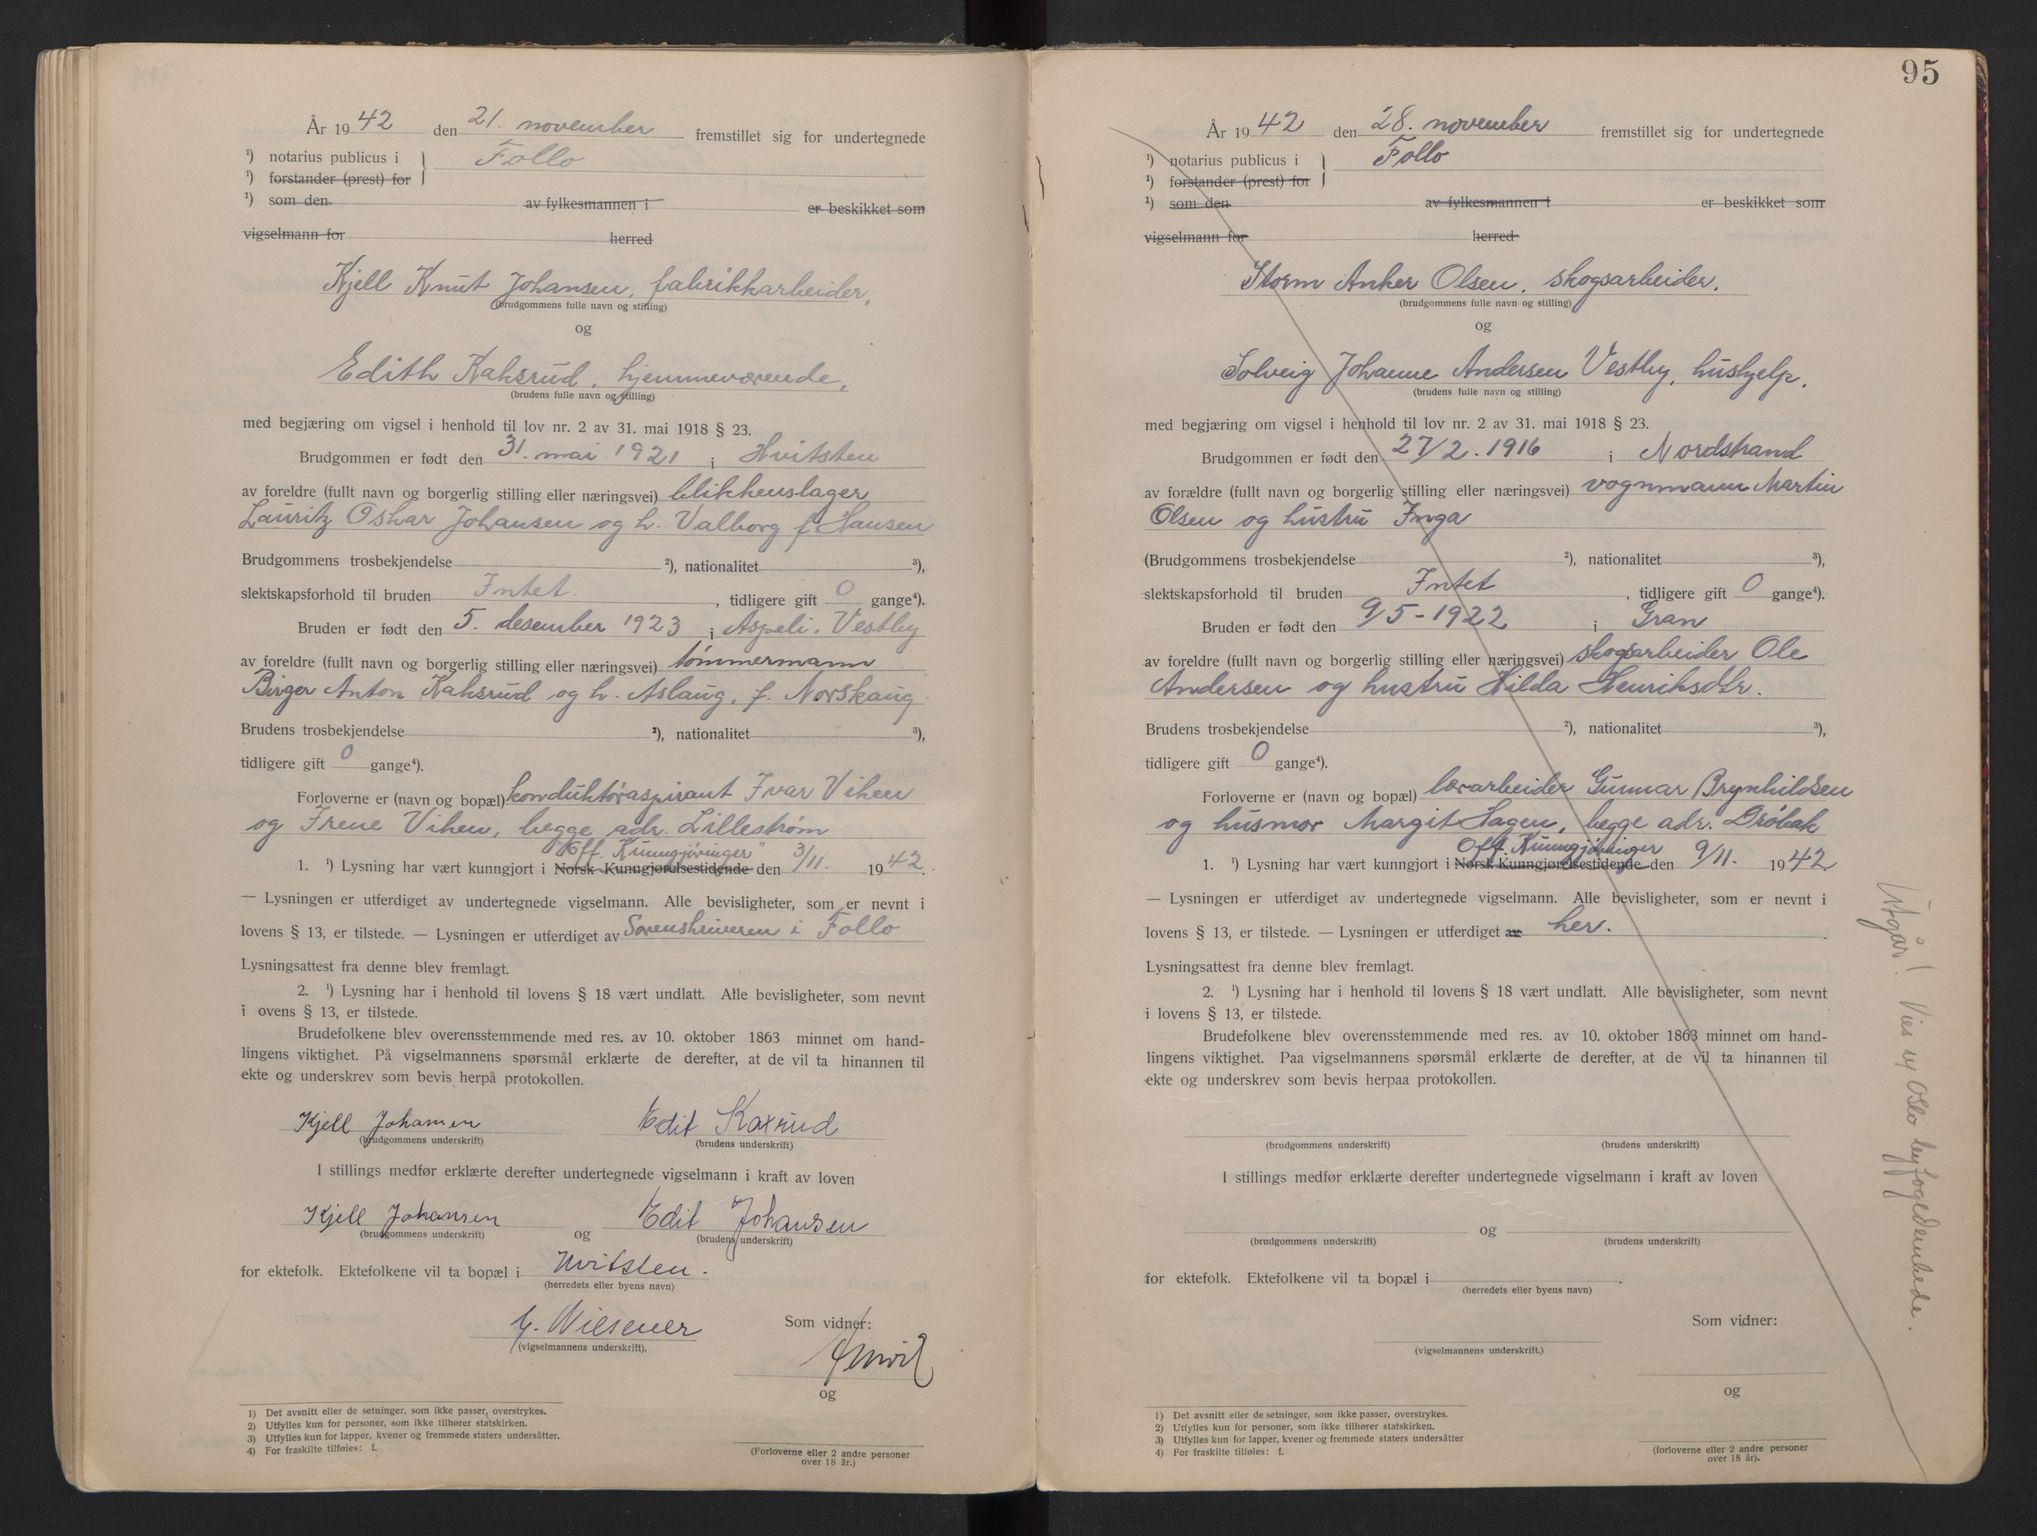 År 1942 den 21. november fremstillet sig for undertegnede
¹) notarius publicus i } Follo
¹) forstander (prest) for
¹) som den av fylkesmannen i er beskikket som
vigselmann for herred
Kjell Knut Johansen, fabrikkarbeider,
(brudgommens fulle navn og stilling)
og
Edith Kahsrud, hjemmeværende,
(brudens fulle navn og stilling)
med begjæring om vigsel i henhold til lov nr. 2 av 31. mai 1918 § 23.
Brudgommen er født den 31. mai 1921 i Hvitsten
av foreldre (fullt navn og borgerlig stilling eller næringsvei) blikkenslager
Lauritz Oskar Johansen og h. Valborg f. Hansen
Brudgommens trosbekjendelse ²), nationalitet ³),
slektskapsforhold til bruden Intet. , tidligere gift 0 gange⁴).
Bruden er født den 5. desember 1923 i Aspeli. Vestby
av foreldre (fullt navn og borgerlig stilling eller næringsvei) tømmermann
Birger Anton Kahsrud og h. Aslaug, f. Norskaug.
Brudens trosbekjendelse ²), nationalitet ³),
tidligere gift 0 gange⁴).
Forloverne er (navn og bopæl) konduktøraspirant Ivar Viken
og Irene Viken, begge adr. Lillestrøm
"Off. Kunngjøringer"
1. ¹) Lysning har vært kunngjort i Norsk Kunngjørelsestidende den 3/11. 1942.
— Lysningen er utferdiget av undertegnede vigselmann. Alle bevisligheter, som er nevnt i
lovens § 13, er tilstede. — Lysningen er utferdiget av Sorenskriveren i Follo
Lysningsattest fra denne blev fremlagt.
2. ¹) Lysning har i henhold til lovens § 18 vært undlatt. Alle bevisligheter, som nevnt
i ovens § 13, er tilstede.
Brudefolkene blev overensstemmende med res. av 10. oktober 1863 minnet om hand-
lingens viktighet. På vigselmannens spørsmål erklærte de derefter, at de vil ta hinannen til
ekte og underskrev som bevis herpå protokollen.
Kjell Johansen Edit Kaxrud
(brudgommens underskrift) (brudens underskrift)
I stillings medfør erklærte derefter undertegnede vigselmann i kraft av loven
Kjell Johansen og Edit Johansen
(brudgommens underskrift) (brudens underskrift)
for ektefolk. Ektefolkene vil ta bopæl i Hvitsten.
(herredets eller byens navn)
Wiesener Som vidner:
(vigselmannens underskrift).
og
1) Det avsnitt eller de setninger, som ikke passer, overstrykes.
2) Utfylles kun for personer, som ikke tilhører statskirken.
3) Utfylles kun for lapper, kvener og fremmede staters undersåtter.
4) For fraskilte tilføies: f.
(Forloverne eller 2 andre personer
over 18 år.)
95
År 1942 den 28. november fremstillet sig for undertegnede
¹) notarius publicus i } Follo
¹) forstander (prest) for
¹) som den av fylkesmannen i er beskikket som
vigselmann for herred
Storm Anker Olsen, skogsarbeider.
(brudgommens fulle navn og stilling)
og
Solveig Johanne Andersen Vestby, hushjelp.
(brudens fulle navn og stilling)
med begjæring om vigsel i henhold til lov nr. 2 av 31. mai 1918 § 23.
Brudgommen er født den 27/2. 1916 i Nordstrand
av forældre (fullt navn og borgerlig stilling eller næringsvei) vognmann Martin
Olsen og hustru Inga
(Brudgommens trosbekjendelse ²), nationalitet ³),
slektskapsforhold til bruden Intet , tidligere gift 0 gange⁴).
Bruden er født den 9/5-1922 i Gran
av foreldre (fullt navn og borgerlig stilling eller næringsvei) skogsarbeider Ole
Andersen og hustru Hilda Henriksdtr.
Brudens trosbekjendelse ²), nationalitet ³),
tidligere gift 0 gange⁴).
Forloverne er (navn og bopæl) lærarbeider Gunnar Brynhildsen
og husmor Margit Hagen, begge adr. Drøbak
Off. Kunngjøringer
1. ¹) Lysning har vært kunngjort i Norsk Kunngjørelsestidende den 9/11. 1942
— Lysningen er utferdiget av undertegnede vigselmann. Alle bevisligheter, som er nevnt i
lovens § 13, er tilstede. — Lysningen er utferdiget av her.
Lysningsattest fra denne blev fremlagt.
2. ¹) Lysning har i henhold til lovens § 18 vært undlatt. Alle bevisligheter, som nevnt
i lovens § 13, er tilstede.
Brudefolkene blev overensstemmende med res. av 10. oktober 1863 minnet om hand-
lingens viktighet. Paa vigselmannens spørsmål erklærte de derefter, at de vil ta hinannen til
ekte og underskrev som bevis herpaa protokollen.
(brudgommens underskrift) (brudens underskrift)
I stillings medfør erklærte derefter undertegnede vigselmann i kraft av loven
og
(brudgommens underskrift) (brudens underskrift)
for ektefolk. Ektefolkene vil ta bopæl i .
(herredets eller byens navn)
Som vidner:
(vigselmannens underskrift.)
og
1) Det avsnitt eller de setninger, som ikke passer, overstrykes.
2) Utfylles kun for personer, som ikke tilhører statskirken.
3) Utfylles kun for lapper, kvener og fremmede staters undersåtter
4) For fraskilte tilføies: f.
(forloverne eller 2 andre personer
over 18 år).
Utgår! Vies v/ Oslo byfogedembede.